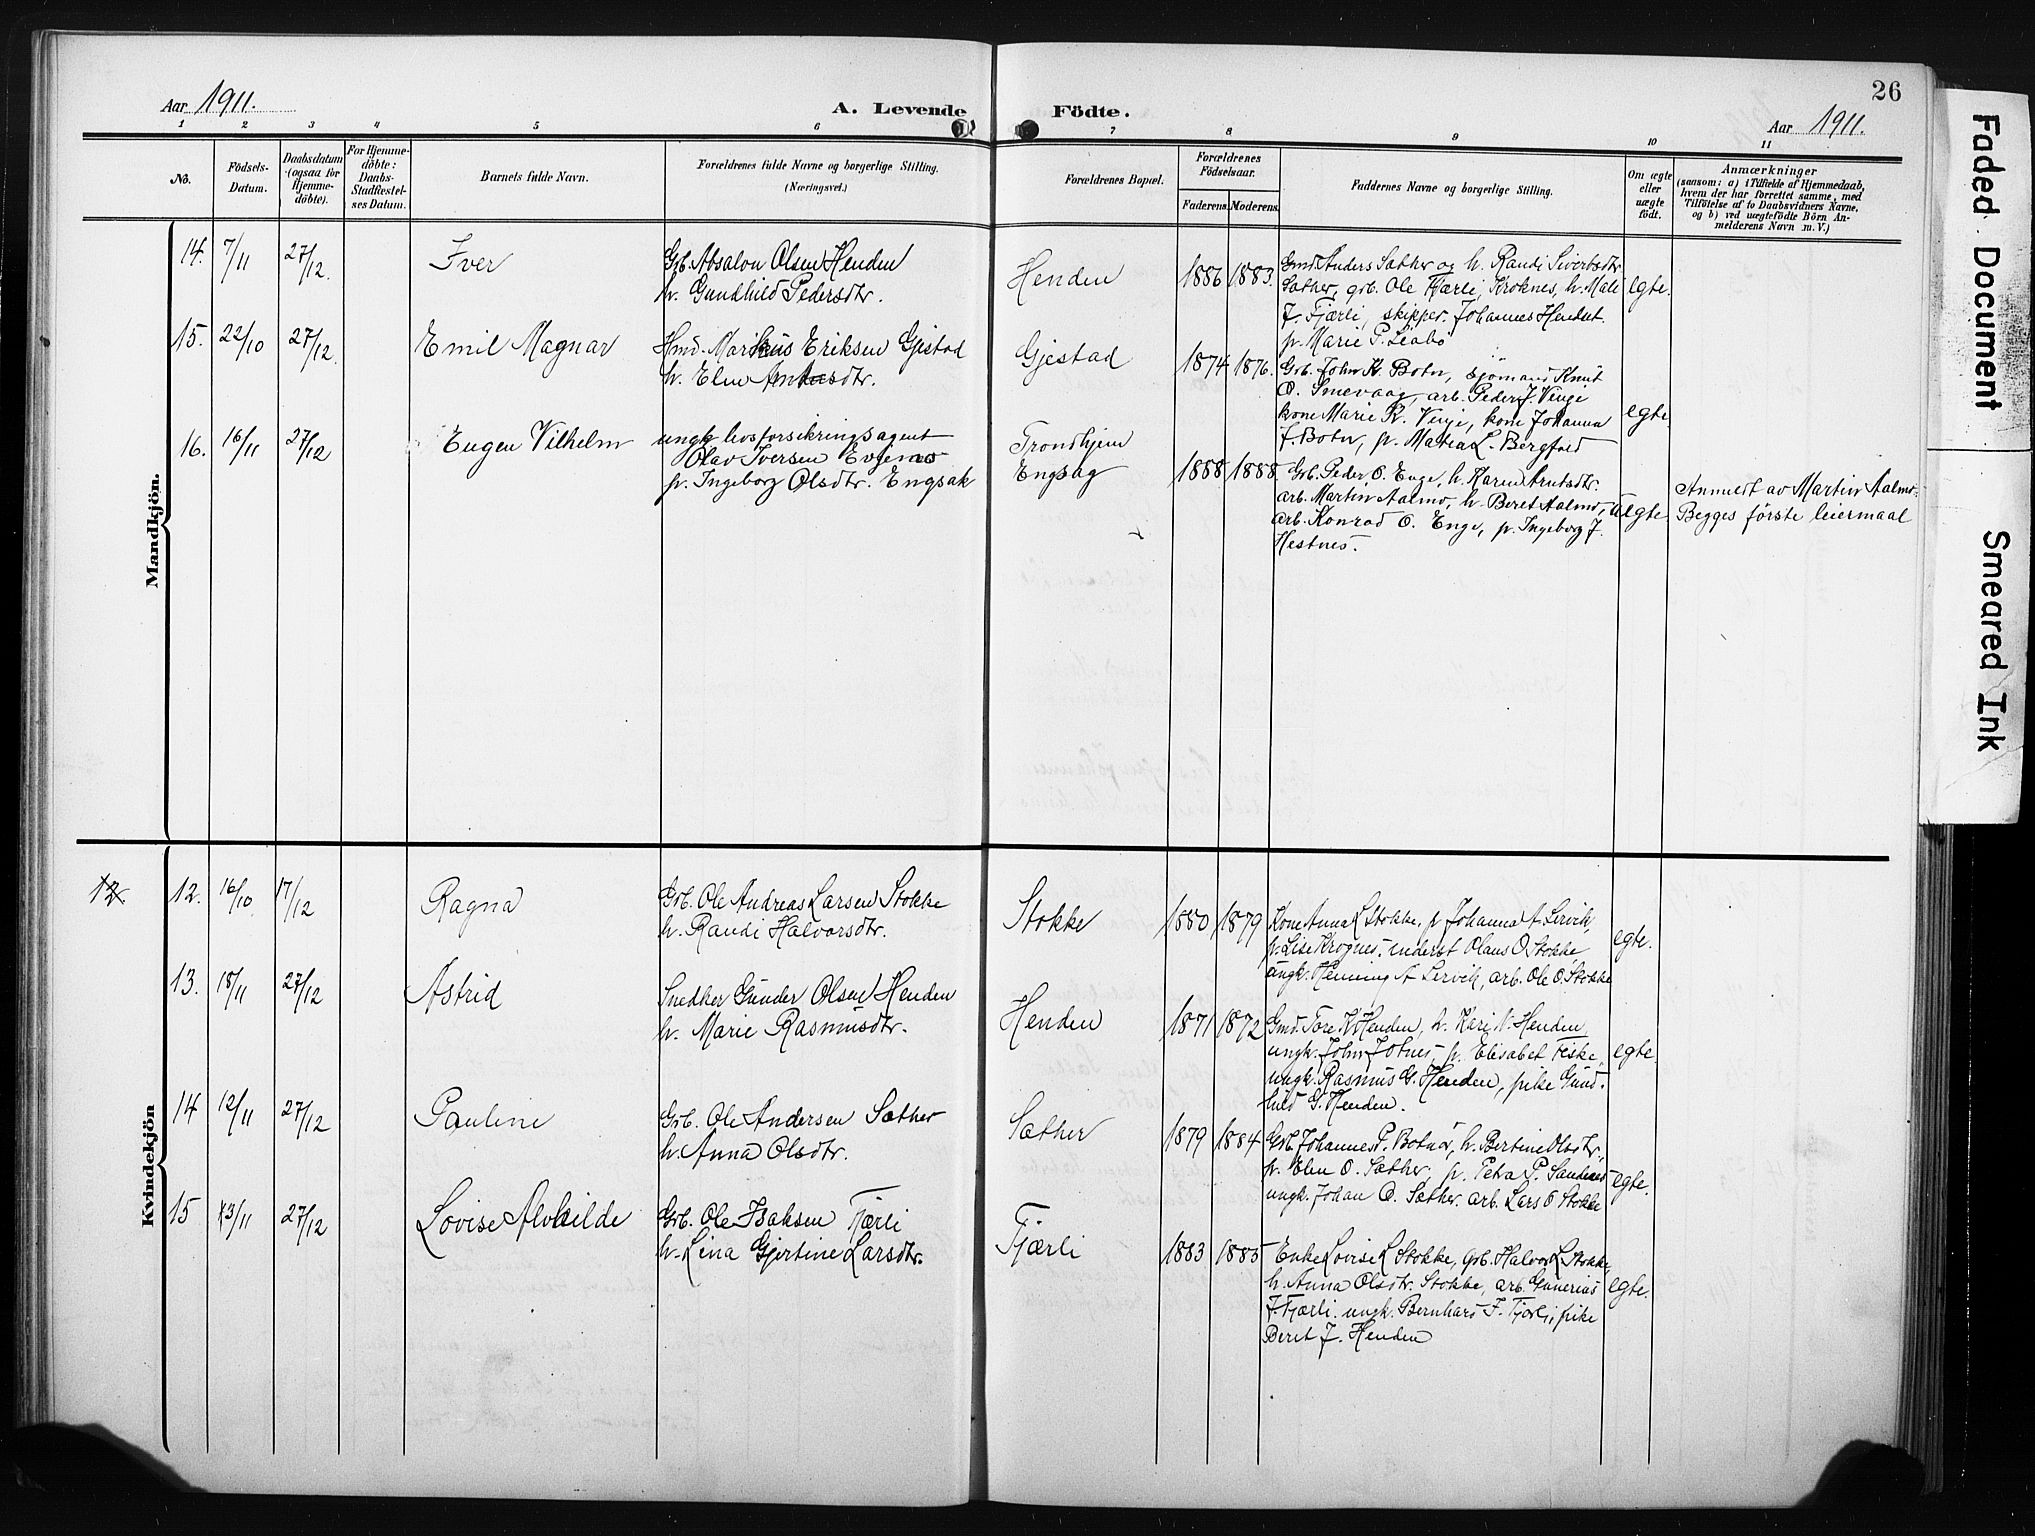 26
Aar 1911.
A. Levende Födte.
Aar 1911.
1 2 3 4 5 6 7 8 9 10 11
No.
Födsels-
Datum.
Daabsdatum
(ogsaa for
Hjemme-
döbte).
For Hjemme-
döbte:
Daabs-
Stadfæstel-
ses Datum.
Barnets fulde Navn.
Forældrenes fulde Navne og borgerlige Stilling.
(Næringsvei.)
Forældrenes Bopæl.
Forældrenes
Födselsaar.
Faderens. Moderens.
Faddernes Navne og borgerlige Stilling.
Om ægte
eller
uægte
födt.
Anmærkninger
(saasom: a) i Tilfælde af Hjemmedaab,
hvem der har forrettet samme, med
Tilföielse af to Daabsvidners Navne,
og b) ved uægtefödte Börn An-
melderens Navn m. V.)
Mandkjön.
14. 7/11 27/12. Iver
Grb. Absalon Olsen Henden
h. Gundhild Pedersdtr.
Henden 1886 1883.
Gmd Anders Sæther og h. Randi Sivertsdtr
Sæther, grb. Ole Fjærli, Kroknes, h. Mali
J. Fjærli, skipper Johannes Hendset.
p. Marie P. Leabø
egte.
15. 22/10 27/12. Emil Magnar
Hmd. Markus Eriksen Gjestad
h. Elen
Gjestad 1874 1876.
Grb. John K. Botn, sjømand Knut
O. Smevaag, arb. Peder J. Vinje
kone Marie K. Vinje, kone Johanna
J. Botn, p. L. Bergfald
egte.
16. 16/11 27/12 Eugen Vilhelm
ungk livsforsikringsagent
Olav Iversen Evjemo
p. Ingeborg Olsdtr. Engsak
Trondhjem
Engsag 1888 1888.
Grb. Peder O. Enge, h. Karen Arntsdtr.
arb. Martin Aalmo, h. Beret Aalmo,
arb. Konrad O. Enge, p. Ingeborg J.
Hestnes.
uegte
Anmeldt av Martin Aalmo.
Begges første leiermaal
Kvindekjön
12. 12. 16/10 17/12 Ragna
Grb. Ole Andreas Larsen Stokke
h. Randi Halvorsdtr.
Stokke 1880 1879
Kone Anna L Stokke, p Johanna A. Lervik,
p. Lise Krognes, inderst Olaus O. Stokke
ungk. Henning A Lervik, arb. Ole O. Stokke
egte.
13. 18/11 27/12 Astrid
Snedker Gunder Olsen Henden
h. Marie Rasmusdtr.
Henden 1871 1872
Gmd. Tore K Henden, h. Kari N. Henden
ungk. John J Otnes, p. Elisabet Feske,
ungk. Rasmus G. Henden, pike Gund-
hild G. Henden.
egte
14 12/11 27/12 Pauline
Grb. Ole Andersen Sæther
h. Anna Olsdtr.
Sæther 1879 1884
Grb. Johannes P. Botnø, h. Bertine Olsdtr.,
h. Elen O. Sæther, p. Petra P. Sandnes
ungk. Johan O. Sæther. arb. Lars O Stokke
egte.
15 13/11 27/12 Lovise Alvhilde
Grb. Ole Isaksen Fjærli
h. Lina Gjertine Larsdtr.
Fjærli 1883 1885
Enke Lovise L Stokke, grb. Halvor L Stokke,
h. Anna Olsdtr. Stokke, arb. Gunerius
J. Fjærli. ungk. Bernhard J. Fjærli, pike
Beret J. Henden
egte.
Faded Document
Smeared Ink